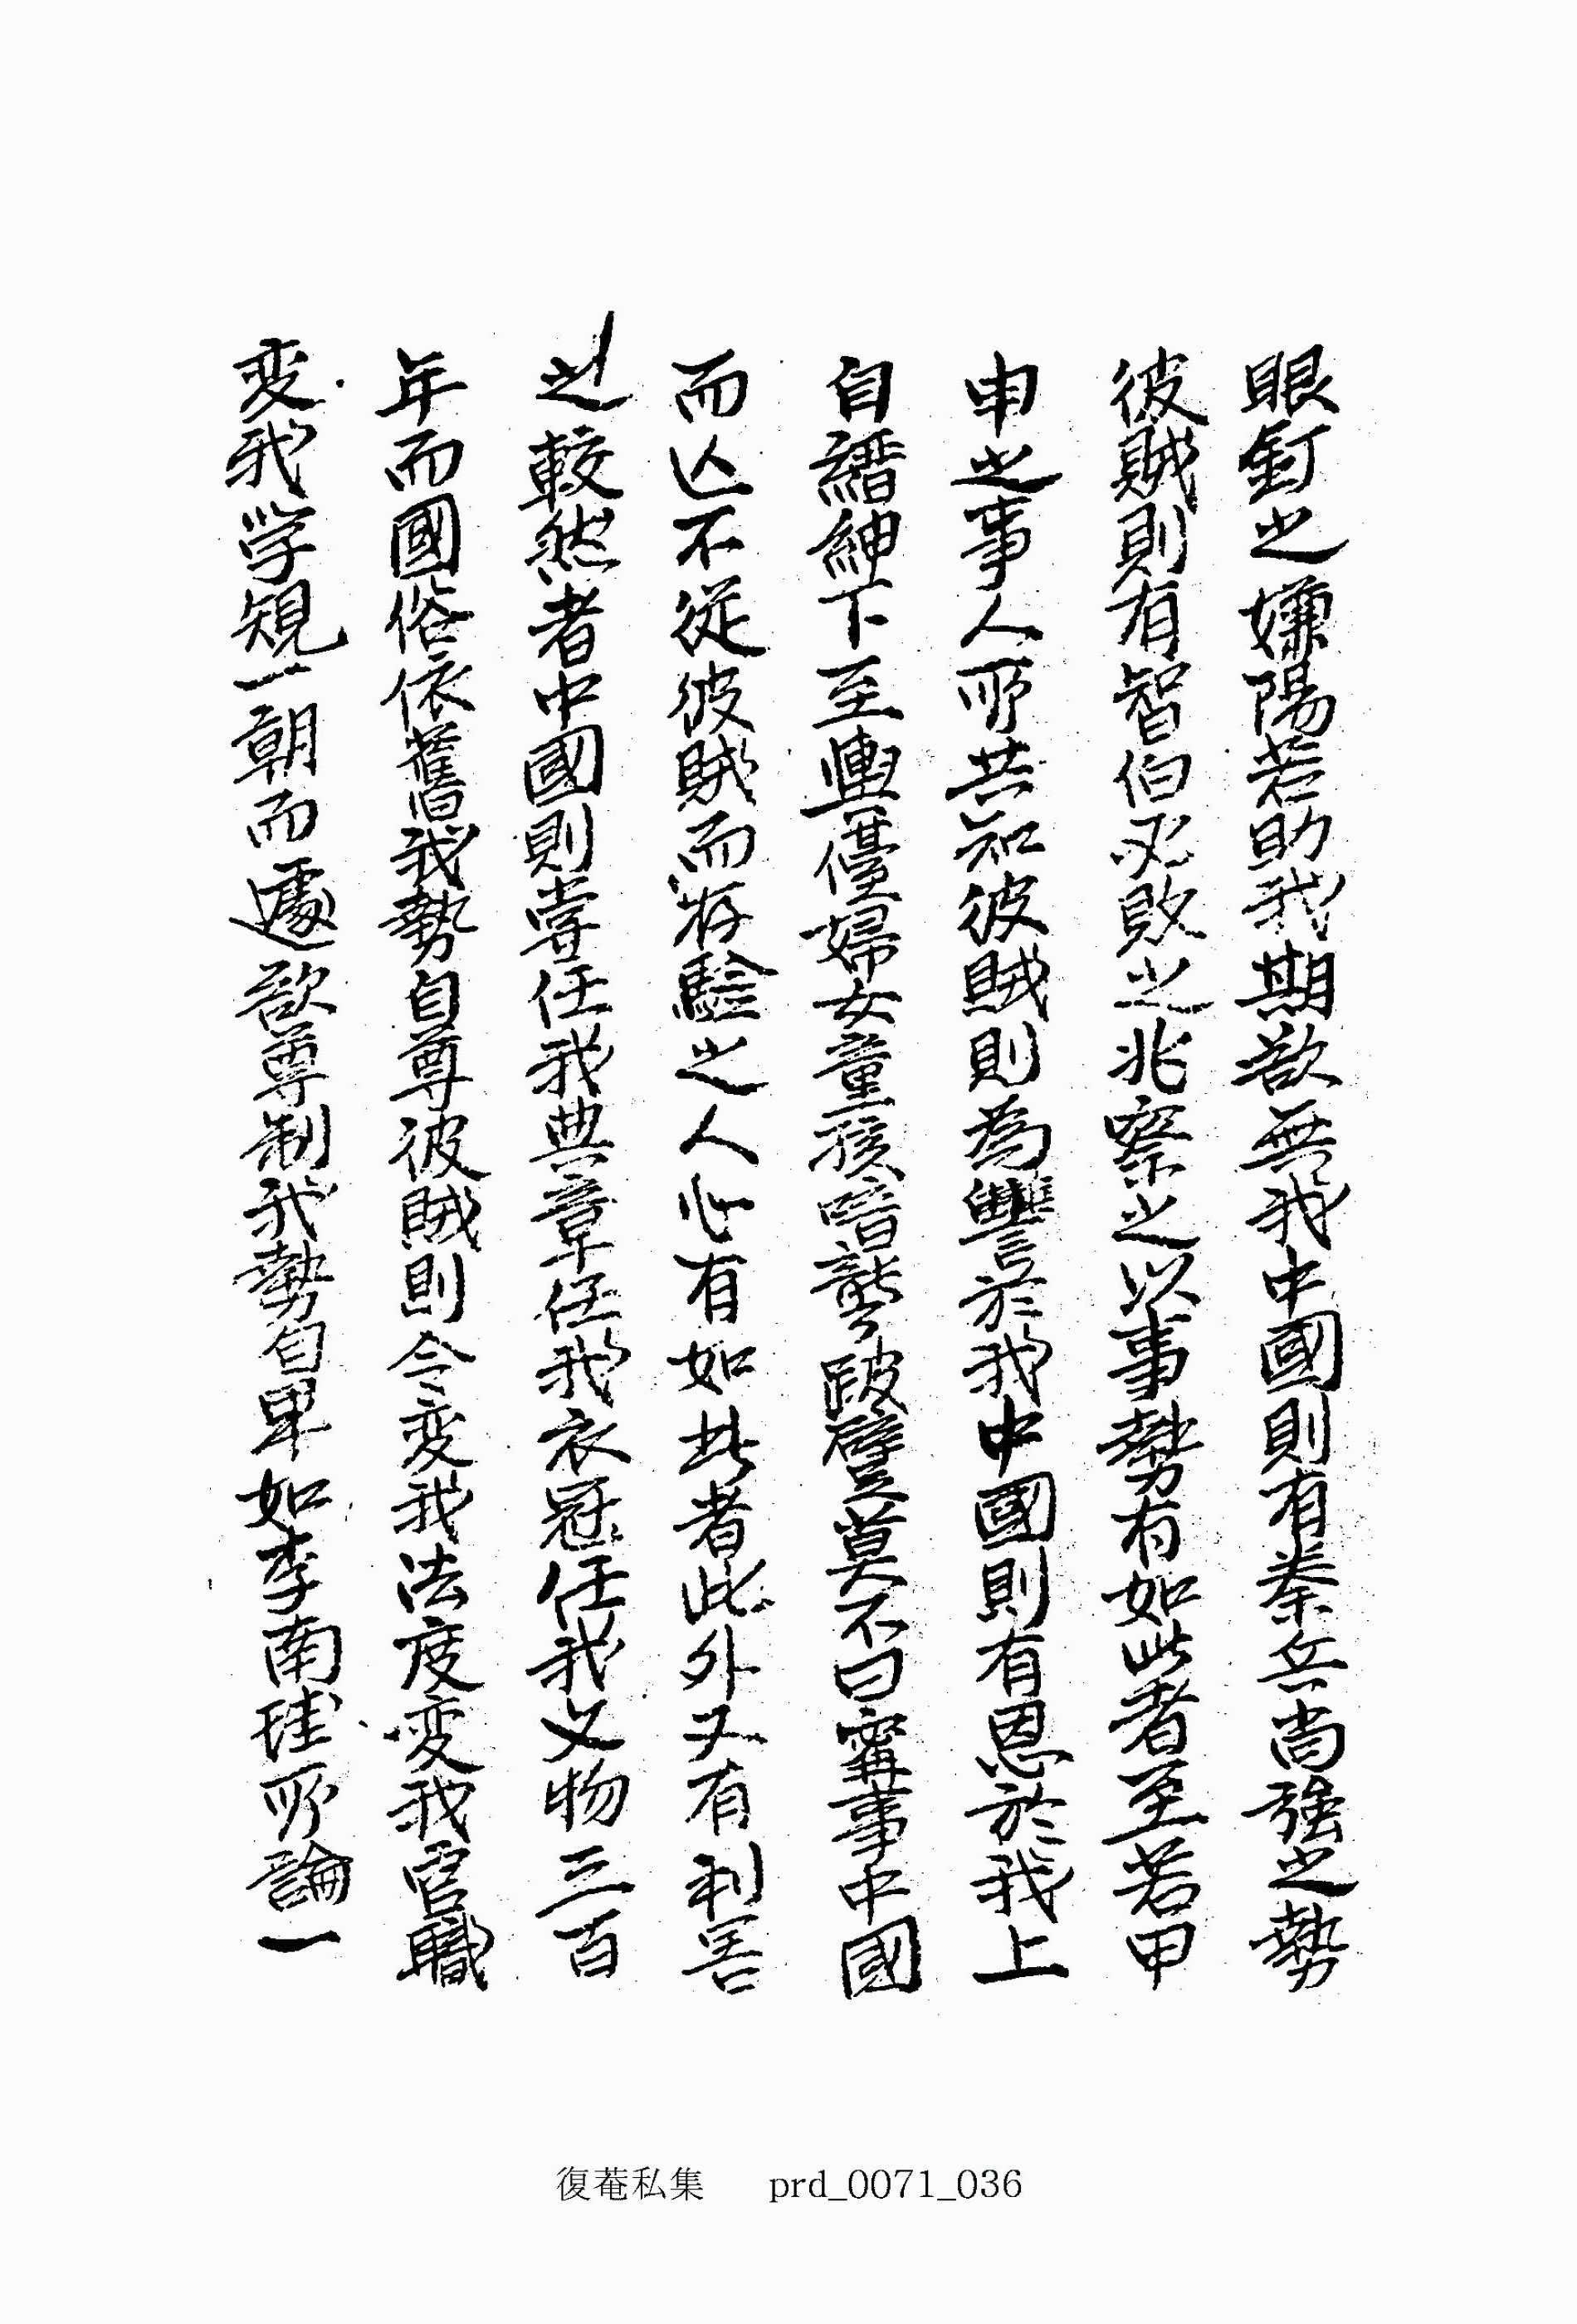 眼釘之嫌陽若助我期欲無我中國則有秦兵尚强之勢
彼賊則有智伯必敗之兆察之以事勢有如此者至若甲
申之事人所共知彼賊則為讐於我中國則有恩於我上
自縉紳下至輿儓婦女童孩喑聾跛躄莫不曰寗事中國
而亾不從彼賊而存驗之人心有如此者此外又有利害
之較然者中國則嘗任我典章任我衣冠任我文物三百
年而國俗依舊我勢自尊彼賊則令変我法度変我官職
変我学規一朝而遽欲尊制我勢自卑如李南珪所論一
復菴私集 prd_0071_036